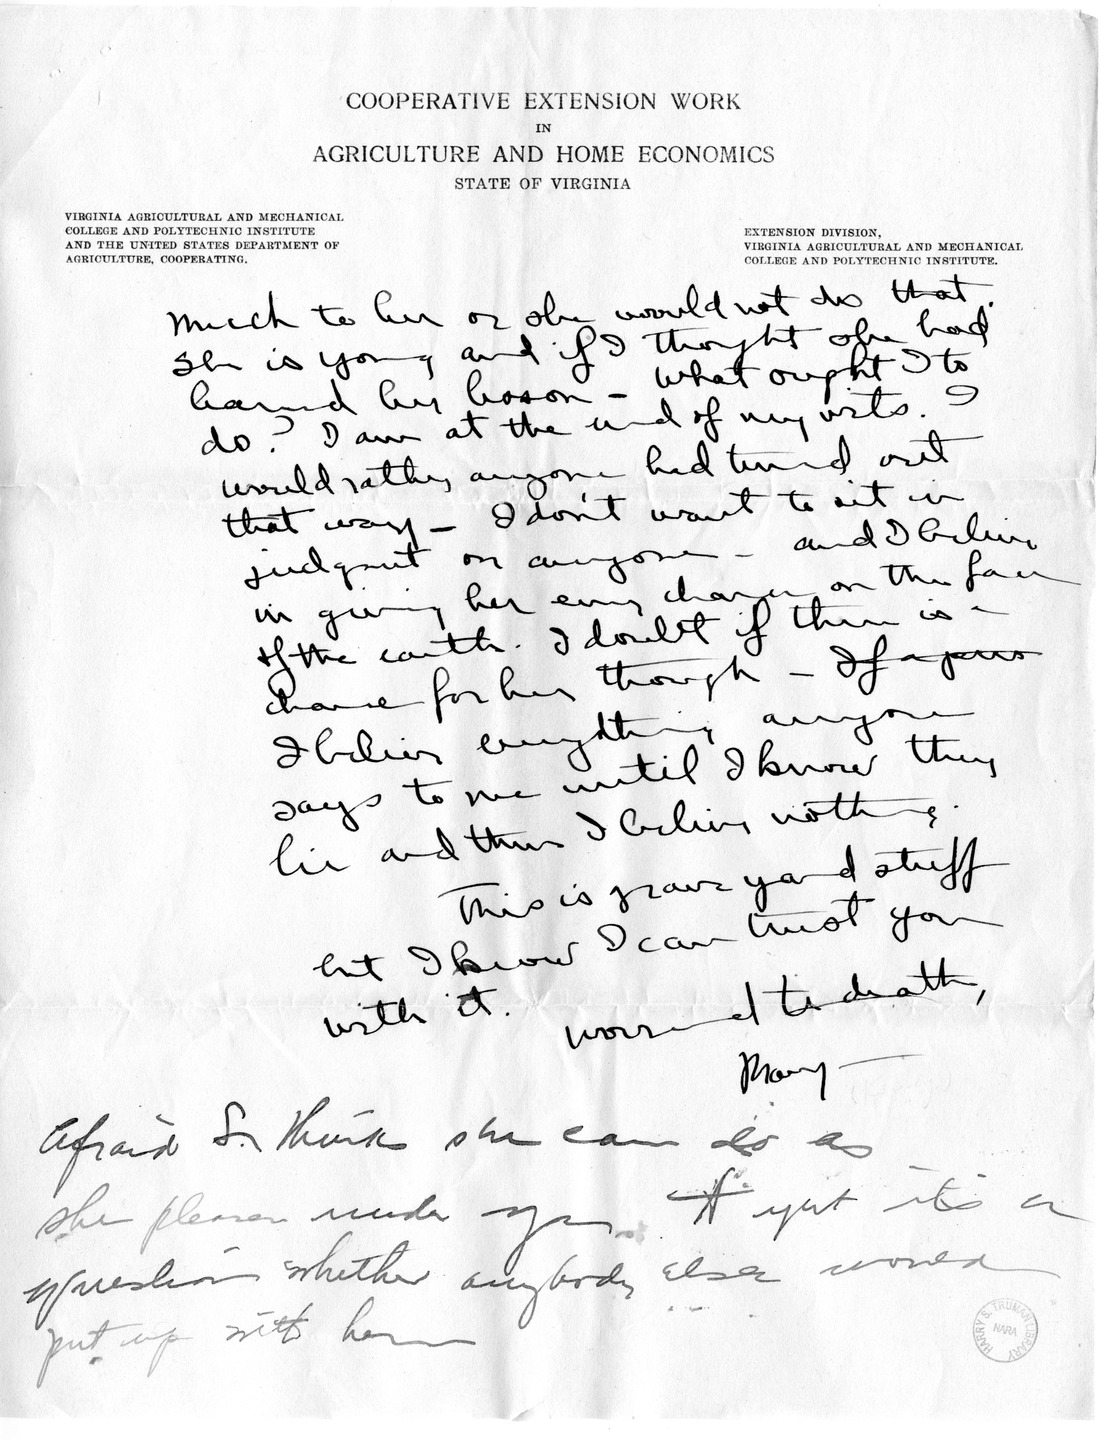 COOPERATIVE EXTENSION WORK
IN
AGRICULTURE AND HOME ECONOMICS
STATE OF VIRGINIA
VIRGINIA AGRICULTURAL AND MECHANICAL
COLLEGE AND POLYTECHNIC INSTITUTE
AND THE UNITED STATES DEPARTMENT OF
AGRICULTURE, COOPERATING.
EXTENSION DIVISION,
VIRGINIA AGRICULTURAL AND MECHANICAL
COLLEGE AND POLYTECHNIC INSTITUTE.
much to her or she would not do that.
She is young and if I thought she had
learned her lesson - what ought I to
do? I am at the end of my wits. I
would rather anyone had turned out
that way - I don't want to sit in
judgment on anyone - and I believe
in giving her every chance on the face
of the earth. I doubt if there is a
chance for her though - If a pers
I believe everything anyone
says to me until I know they
lie and then I believe nothing.
This is grave yard stuff
but I know I can trust you
with it.
worried to death,
Mary
Afraid S. thinks she can do as
she pleases under you. & yet it's a
question whether anybody else would
put up with her
HARRY S. TRUMAN LIBRARY
NARA